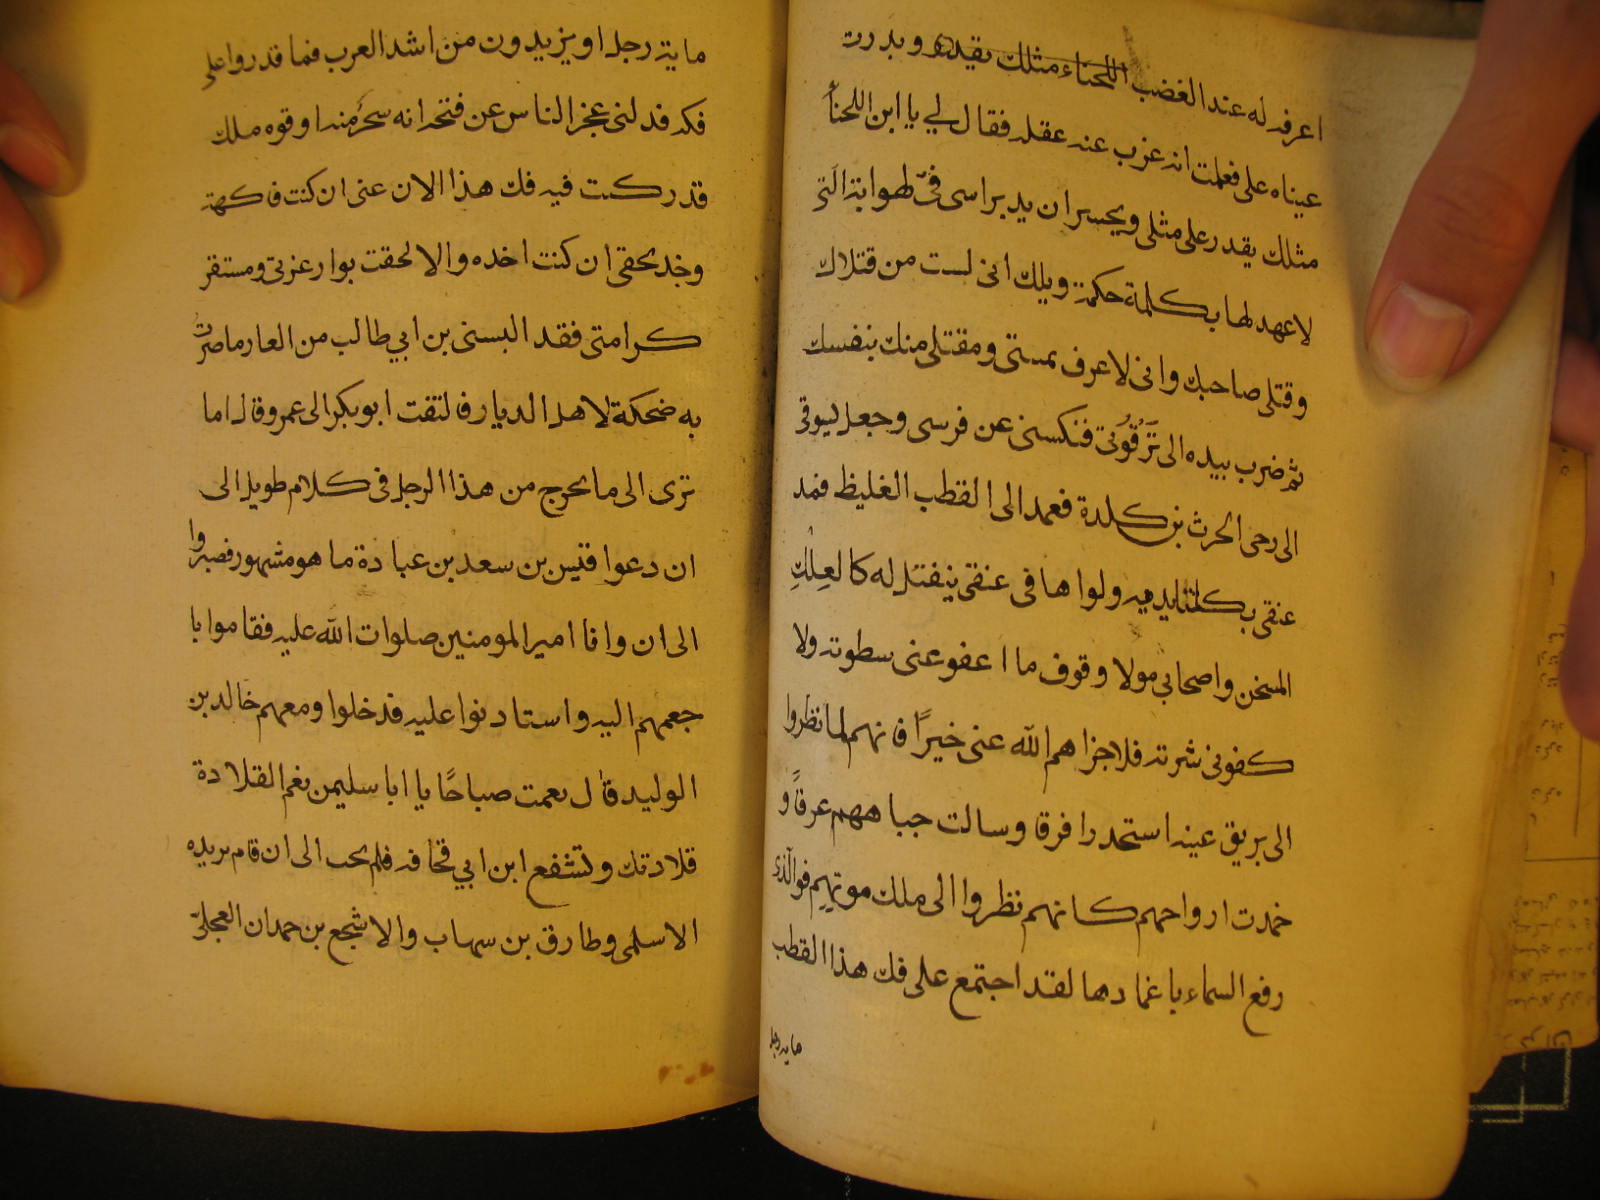 اعرفه له عند الغضب اللخناء مثلك يقيده وبدرت
عيناه على فعلمت انه عزب عنه عقله فقال لي يا ابن اللخنآ
مثلك يقدر على مثلى ويجسر ان يدير اسمى في لهواته التى
لا عهد لها بكلمة حكمة ويلك انى لست من قتلاك
وقتلى صاحبك وانى لاعرف بمنيتى ومقتلى منك بنفسك
ثم ضرب بيده الى تَرْقُوُتى فنكسنى عن فرسى وجعل يسوقى
الى رحى الحرث بن كلدة فعمد الى القطب الغليظ فمد
عنقى بكلتايديه ولواها فى عنقى ينفتل له كالعِلكِ
المسخن واصحابي هولا وقوف ما اعفو عنى سطوته ولا
كفونى شرته فلا جزاهم الله عنى خيرًا فانهم لما نظروا
الى بريق عينه استحدرا فرقا وسالت جباههم عرقًا و
خمدت ارواحهم كانهم نظروا الى ملك موتهم فوالذى
رفع السماء باغمادها لقد اجتمع على فك هذا القطب
مايه رجل
ماية رجل او يزيدون من اشد العرب فما قدروا على
فكه فدلنى عجز الناس عن فتحه انه سحر منه او قوه ملك
قد ركبت فيه فك هذا الان عنى ان كنت فاكهه
وخذ بحقى ان كنت اخذه والا لحقت بوار عزتى ومستقر
كرامتى فقد البسنى بن ابي طالب من العار ما صرت
به ضحكة لاهل الديار فالتفت ابو بكر الى عمر وقال اما
ترى الى ما يخرج من هذا الرجل فى كلام طويل الى
ان دعوا قيس بن سعد بن عبادة ما هو مشهور فصبروا
الى ان وافا امير المومنين صلوات الله عليه فقاموا با
جمعهم اليه واستادنوا عليه فدخلوا ومعهم خالد بن
الوليد قال نعمت صباحًا يا ابا سليمن نعم القلادة
قلادتك وتشفع ابن ابي قحافه فلم يجب الى ان قام بريده
الاسلمى وطارق بن سهاب والاشجع بن حمدان العجلى